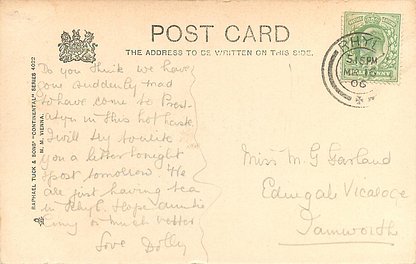 POST CARD
THE ADDRESS TO BE WRITTEN ON THIS SIDE.
RAPHAEL TUCK & SONS' "CONTINENTAL" SERIES 4022
M. M. VIENNA.
RHYL
5.15 PM
06
Do you think we have
gone suddenly mad
to have come to Prest-
atyn in this hot haste
I will try to write
you a letter tonight
& post tomorrow. We
are just having tea
in Rhyl. Hope Auntie
is much better
Love Dolly
Miss M G Garland
Vicarage
Tamworth